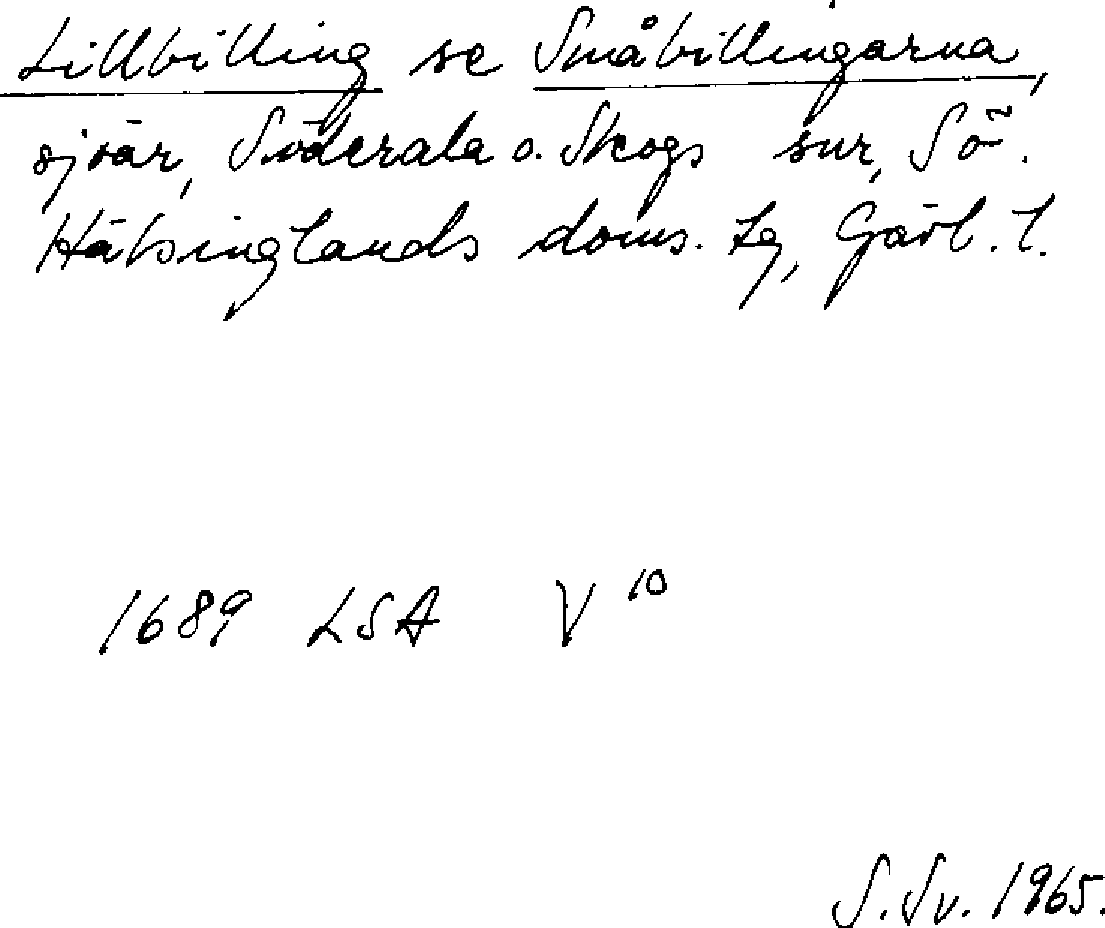 Lillbilling se Småbillingarna,
sjöar, Söderala o. Skogs snr, Sö.
Hälsinglands doms. tg, Gävl. l.
1689 LSA V 10
S. Sv. 1965.